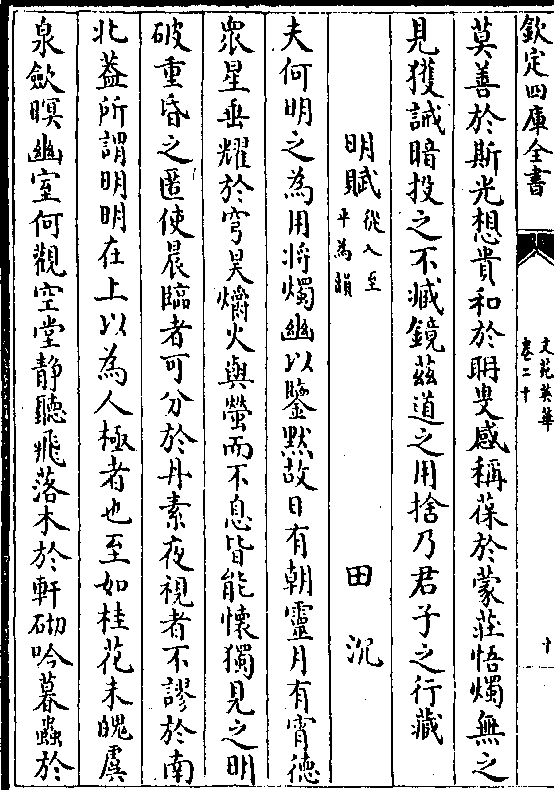 欽定四庫全書
文苑英華
卷二十
十
莫善於斯光想貴和於明叟感稱葆於蒙莊悟燭無之
見獲誡暗投之不臧鏡茲道之用捨乃君子之行藏
明賦從入至
平為韻
田沉
夫何明之為用將燭幽以鑒黙故日有朝靈月有宵德
衆星垂耀於穹昊爝火與螢而不息皆能懷獨見之明
破重昏之匿使晨臨者可分於丹素夜視者不謬於南
北葢所謂明明在上以為人極者也至如桂花未魄虞
泉斂暝幽室何觀空堂静聽飛落木於軒砌吟暮蟲於